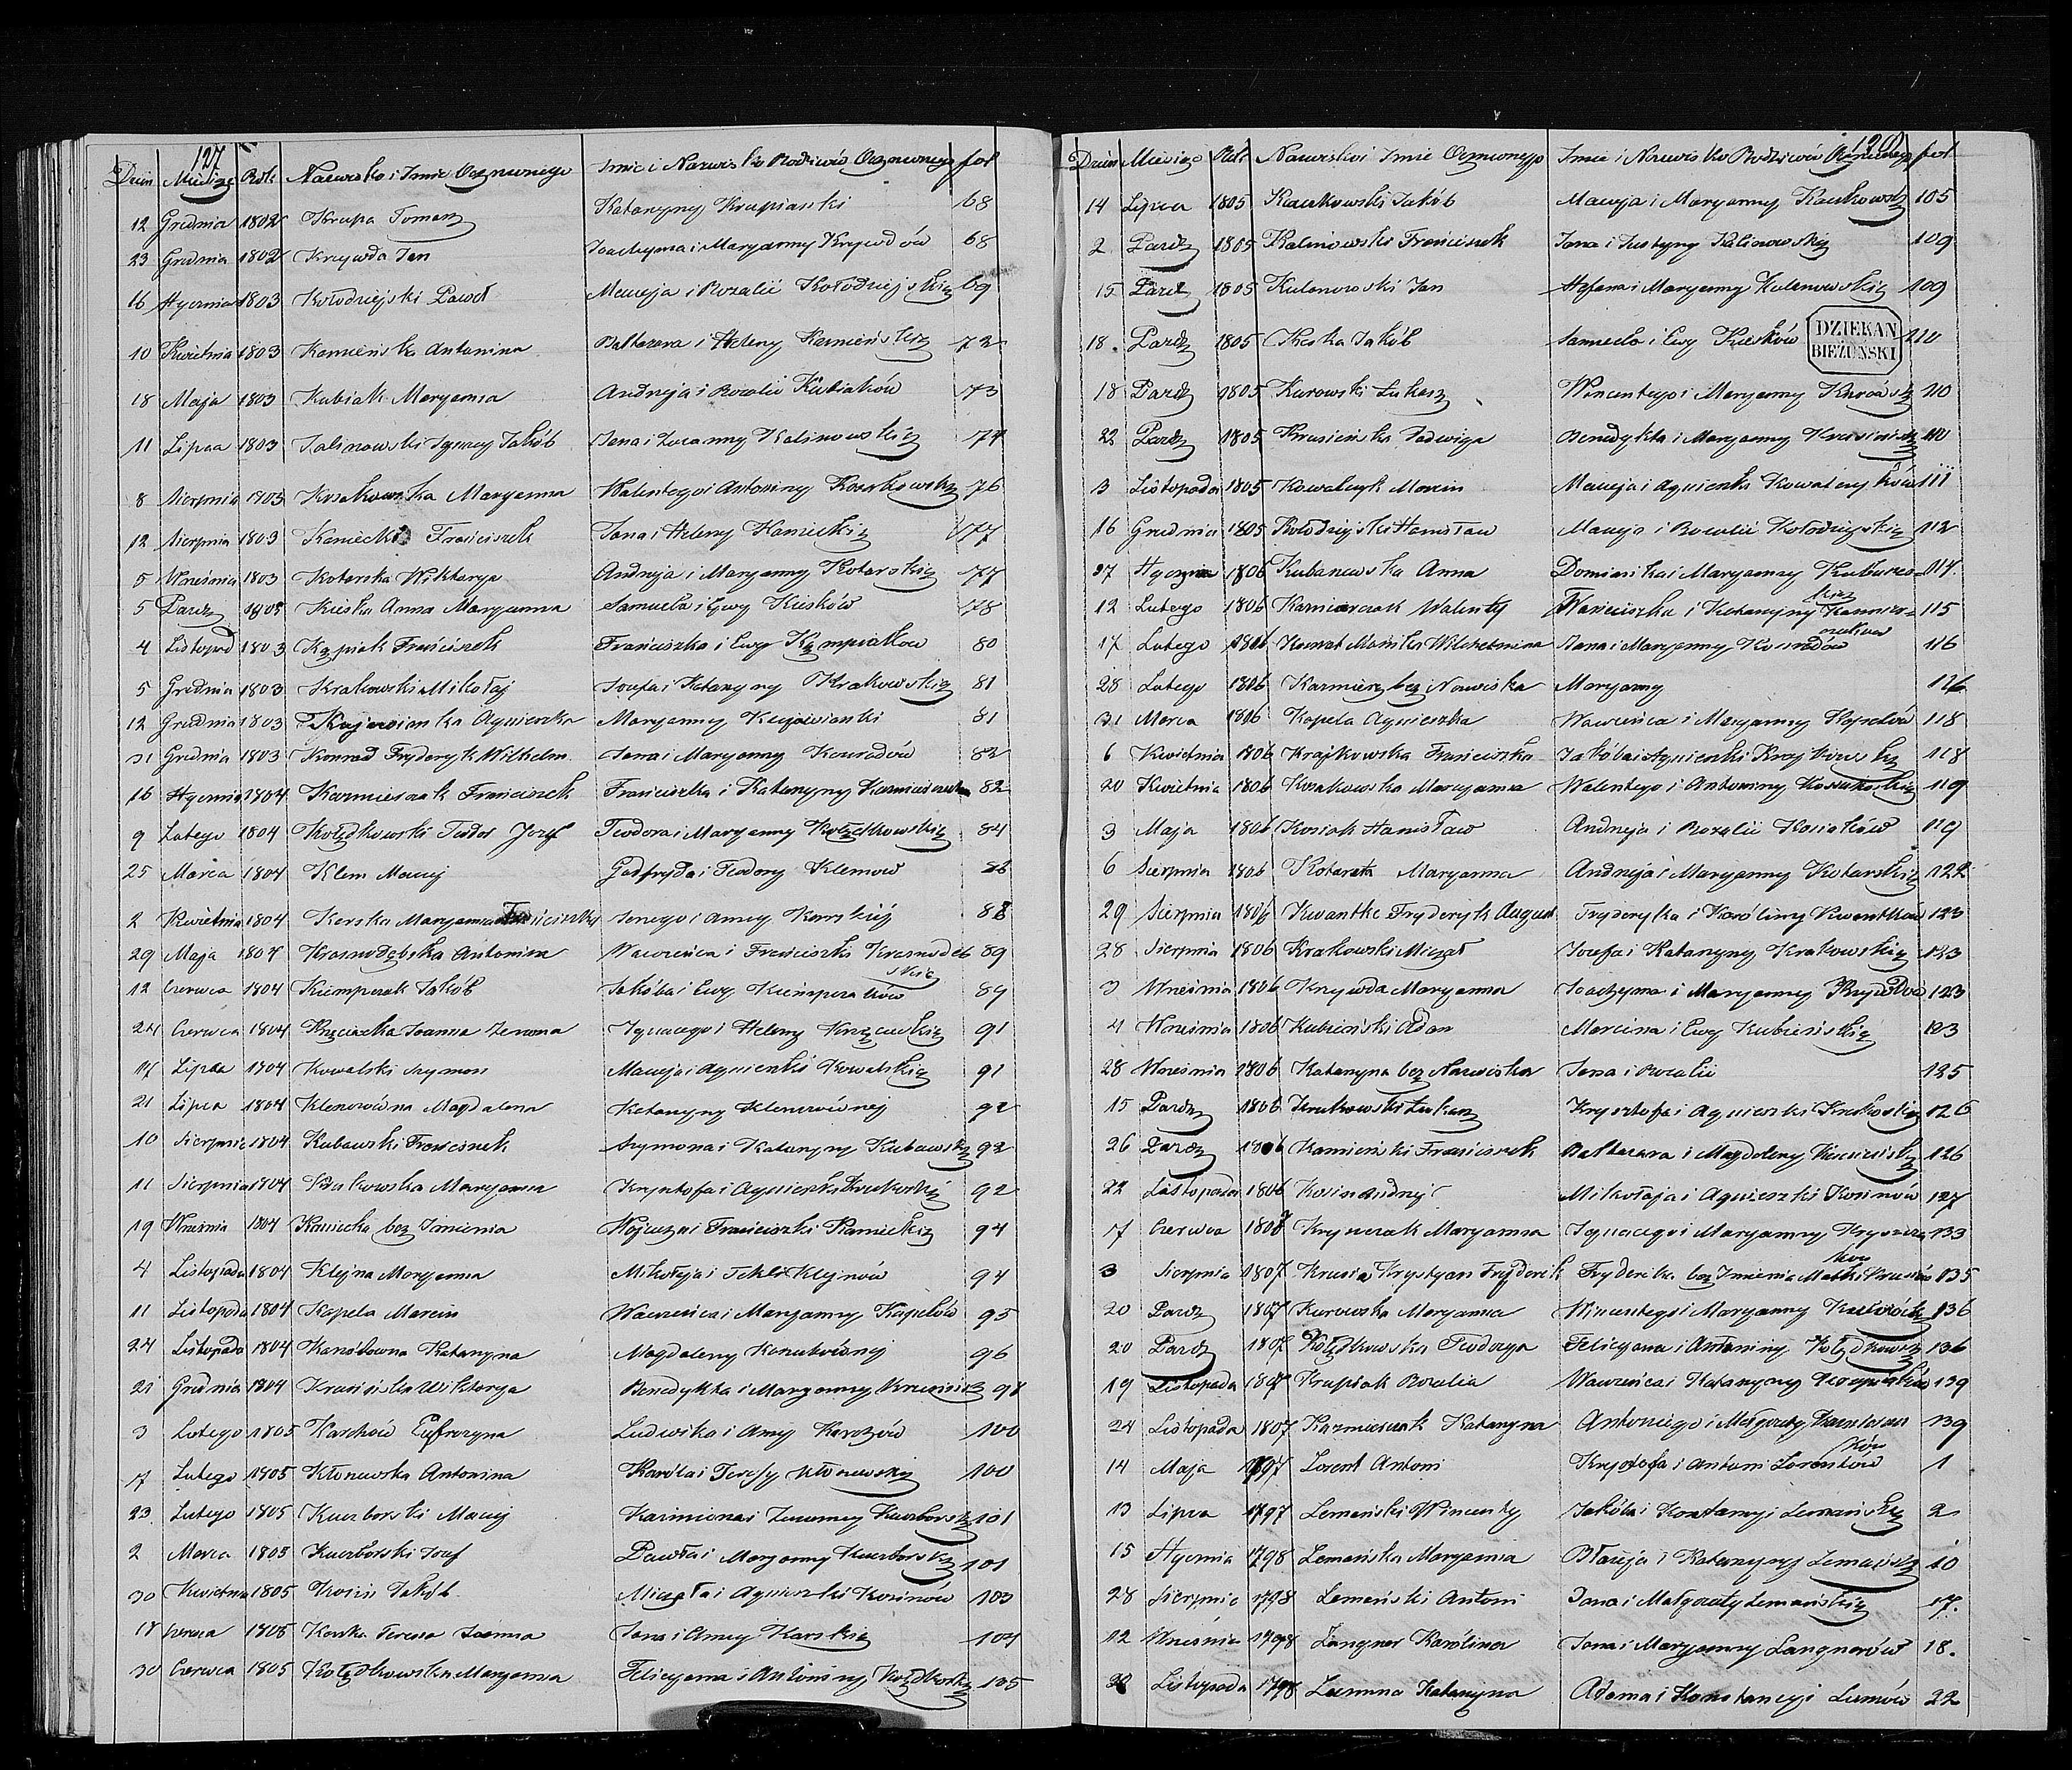 127
Dzień Miesiąc Rok Nazwisko i Imie Oczczonego Imie i Nazwisko Rodziców Oczczonego fol
12 Grudnia 1802 Krupa Tomasz Katarzyny Krupianki 68
23 Grudnia 1802 Krzywda Jan Joachyma i Maryanny Krzywdów 68
16 Stycznia 1803 Kołodziejski Paweł Macieja i Rozalii Kołodziejskich 69
10 Kwietnia 1803 Kamieńska Antonina Baltazara i Heleny Kamieńskich 72
18 Maja 1803 Kubiak Maryanna Andrzeja i Rozalii Kubiaków 73
11 Lipca 1803 Kalinowski Ignacy Jakób Jana i Zuzanny Kalinowskich 74
8 Sierpnia 1803 Kosakowska Maryanna Walentego i Antoniny Kosakowskich 76
12 Sierpnia 1803 Kaniecki Franciszek Jana i Heleny Kanieckich 77
5 Września 1803 Kotarska Wiktorya Andrzeja i Maryanny Kotarskich 77
5 Paźdz 1803 Kieska Anna Maryanna Samuela i Ewy Kiesków 78
4 Listopad 1803 Kępiak Franciszek Franciszka i Ewy Kempiaków 80
5 Grudnia 1803 Krakowski Mikołaj Józefa i Katarzyny Krakowskich 81
12 Grudnia 1803 Kujawianka Agnieszka Maryanny Kujawianki 81
31 Grudnia 1803 Konrad Fryderyk Wilhelm Jana i Maryanny Konradów 82
16 Stycznia 1804 Kazmierczak Franciszek Franciszka i Katarzyny Kazmierczaków 82
9 Lutego 1804 Kołędkowski Teodor Józef Teodora i Maryanny Kołędkowskich 84
25 Marca 1804 Klem Maciej Godfryda i Teodory Klemow 86
2 Kwietnia 1804 Karska Maryanna Franciszka Jenego i Anny Karskiej 88
29 Maja 1804 Krasnodębska Antonina Wawrzeńca i Franciszki Krasnodęb 89
skich
12 Czerwca 1804 Kiemperak Jakób Jakóba i Ewy Kiemperaków 89
24 Czerwca 1804 Kręciecka Joanna Zenona Ignacego i Heleny Kręcieckich 91
17 Lipca 1804 Kowalski Szymon Macieja i Agnieszki Kowalskich 91
21 Lipca 1804 Klenowówna Magdalena Katarzyny Klenowównej 92
10 Sierpnia 1804 Kubawski Franciszek Szymona i Katarzyny Kubawskich 92
11 Sierpnia 1804 Krukowska Maryanna Krysztofa i Agnieszki Krukowskich 92
19 Września 1804 Kaniecka bez Imienia Wojciecha i Franciszki Kanieckich 94
4 Listopada 1804 Klejna Maryanna Mikołaja i Tekli Klejnów 94
11 Listopada 1804 Kapela Marcin Wawrzeńca i Maryanny Kapelów 95
24 Listopada 1804 Katarzyna Magdaleny 96
21 Grudnia 1804 Krusieńska Wiktorya Benedykta i Maryanny 98
3 Lutego 1805 Karchów Eufrozyna Ludwika i Anny Karchów 100
17 Lutego 1805 Kłonowska Antonina Karóla i Teresy Kłonowskich 100
23 Lutego 1805 Kuczborski Maciej Kazimierza i Zuzanny Kuczborskich 101
2 Marca 1805 Kuczborski Józef Pawła i Maryanny Kuczborskich 101
30 Kwietnia 1805 Kosin Jakób Michała i Agnieszki Kosinów 103
18 Czerwca 1805 Karska Teressa Joanna Jana i Anny Karskich 104
30 Czerwca 1805 Kołędkowska Maryanna Felicyana i Antoniny Kołędkowskich 105
128
Dzień Miesiąc Rok Nazwisko i Imie Oczczonego Imie i Nazwisko Rodziców Oczczonego fol
14 Lipca 1805 Kaczkowski Jakób Macieja i Maryanny Kaczkowskich 105
2 Paźdz 1805 Kalinowski Franciszek Jana i Justyny Kalinowskich 109
15 Paźdz 1805 Kulanowski Jan Stefana i Maryanny Kulanowskich 109
18 Paźdz 1805 Kieska Jakób Samuela i Ewy Kiesków 110
DZIEKAN
BIEŻUŃSKI
18 Paźdz 1805 Kurowski Łukasz Wincentego i Maryanny Kurowskich 110
22 Paźdz 1805 Krusieńska Jadwiga Benedykta i Maryanny Krusieńskich 110
3 Listopada 1805 Kowalczyk Marcin Macieja i Agnieszki Kowalczyków 111
16 Grudnia 1805 Kołodziejski Stanisław Macieja i Rozalii Kołodziejskich 112
27 Stycznia 1806 Kubanowska Anna Dominika i Maryanny Kubanow- 114
skich
12 Lutego 1806 Kazmierczak Walenty Franciszka i Katarzyny Kazmier- 115
czaków
17 Lutego 1806 Konrat Wilchelmina Jana i Maryanny Konradów 116
28 Lutego 1806 Kazmierz bez Nazwiska Maryanny 126
31 Marca 1806 Kapela Agnieszka Wawrzeńca i Maryanny Kapelów 118
6 Kwietnia 1806 Krajkowska Franciszka Jakóba i Agnieszki Krajkowskich 118
20 Kwietnia 1806 Kosakowska Maryanna Walentego i Antoniny Kosakowskich 119
3 Maja 1806 Kosiak Stanisław Andrzeja i Rozalii Kosiaków 119
6 Sierpnia 1806 Kotarska Maryanna Andrzeja i Maryanny Kotarskich 122
29 Sierpnia 1806 Kwantke Fryderyk August Fryderyka i Karóliny Kwantków 123
28 Sierpnia 1806 Krakowski Michał Józefa i Katarzyny Krakowskich 123
3 Września 1806 Krzywda Maryanna Joachyma i Maryanny Krzywdów 123
4 Września 1806 Kubieński Adam Marcina i Ewy Kubieńskich 123
28 Września 1806 Katarzyna bez Nazwiska Jana i Rozalii 125
15 Paźdz 1806 Krukowski Łukasz Krysztofa i Agnieszki Krukowskich 126
26 Paźdz 1806 Kamieński Franciszek Baltazara i Magdaleny Kamieńskich 126
22 Listopada 1806 Kosin Andrzej Mikołaja i Agnieszki Kosinów 127
17 Czerwca 1807 Kryszczak Maryanna Ignacego i Maryanny Kryszcza 133
ków
3 Sierpnia 1807 Krusia Krystyan Fryderik Fryderika bez Imienia Matki Krusiów 135
20 Paźdz 1807 Kurowska Maryanna Wincentego i Maryanny Kurowskich 136
20 Paźdz 1807 Kołędkowska Teodozya Felicyana i Antoniny Kołędkowskich 136
19 Listopada 1807 Krupiak Rozalia Wawrzeńca i Katarzyny Krupiaków 139
24 Listopada 1807 Kazmierczak Katarzyna Antoniego i Małgorzaty Kazmiercza 139
ków
14 Maja 1797 Lorent Antoni Krysztofa i Antoni Lorentów 1
13 Lipca 1797 Lemański Wincenty Jakóba i Konstancyi Lemańskich 2
15 Stycznia 1798 Lemańska Maryanna Błażeja i Katarzyny Lemańskich 10
28 Sierpnia 1798 Lemański Antoni Jana i Małgorzaty Lemańskich 17.
12 Września 1798 Langner Karólina Jana i Maryanny Langnerów 18.
22 Listopada 1798 Katarzyna Adama i Konstancyi 22